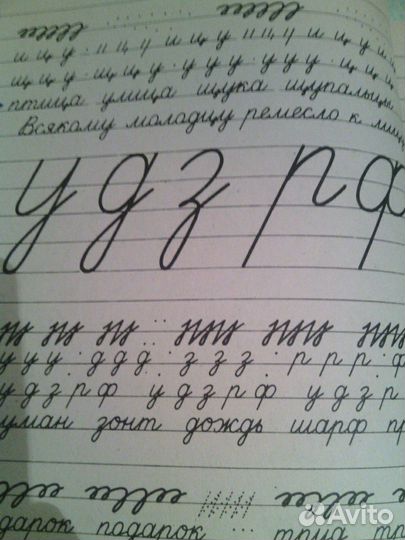 и ц у и ц у и ц у и ц у и ц у и
щ ц у щ ц у у у у у у у ц ц ц
птица улица щука щупальцы
Всякому молодцу ремесло к лицу
у д з р ф
у у у д д д з з з р р р ф
у д з р ф у д з р ф у д з р
туман зонт дождь шарф
подарок подарок труд
Avito